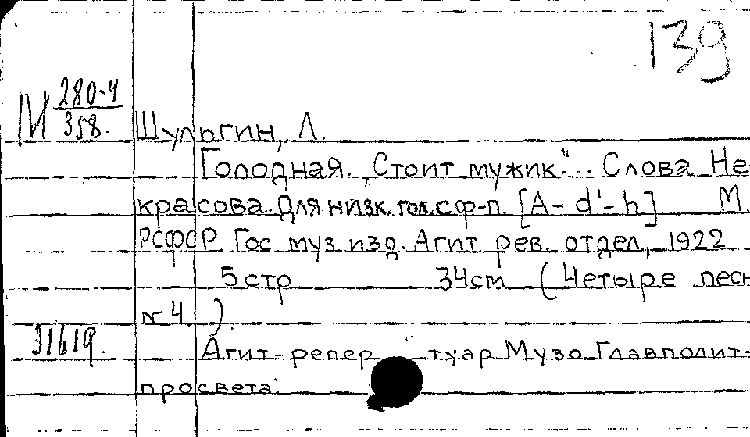 139
М 280-4
358.
Шульгин, Л.
Голодная. „Стоит мужик“... Слова Не
красова. Для низк. гол. с ф-п. [A-d'-h] М.
РСФСР Гос муз изд. Агит рев. отдел, 1922
5 стр 34 см (Четыре песн
№ 4 ).
31619.
Агит-репер туар Музо Главполит-
просвета.